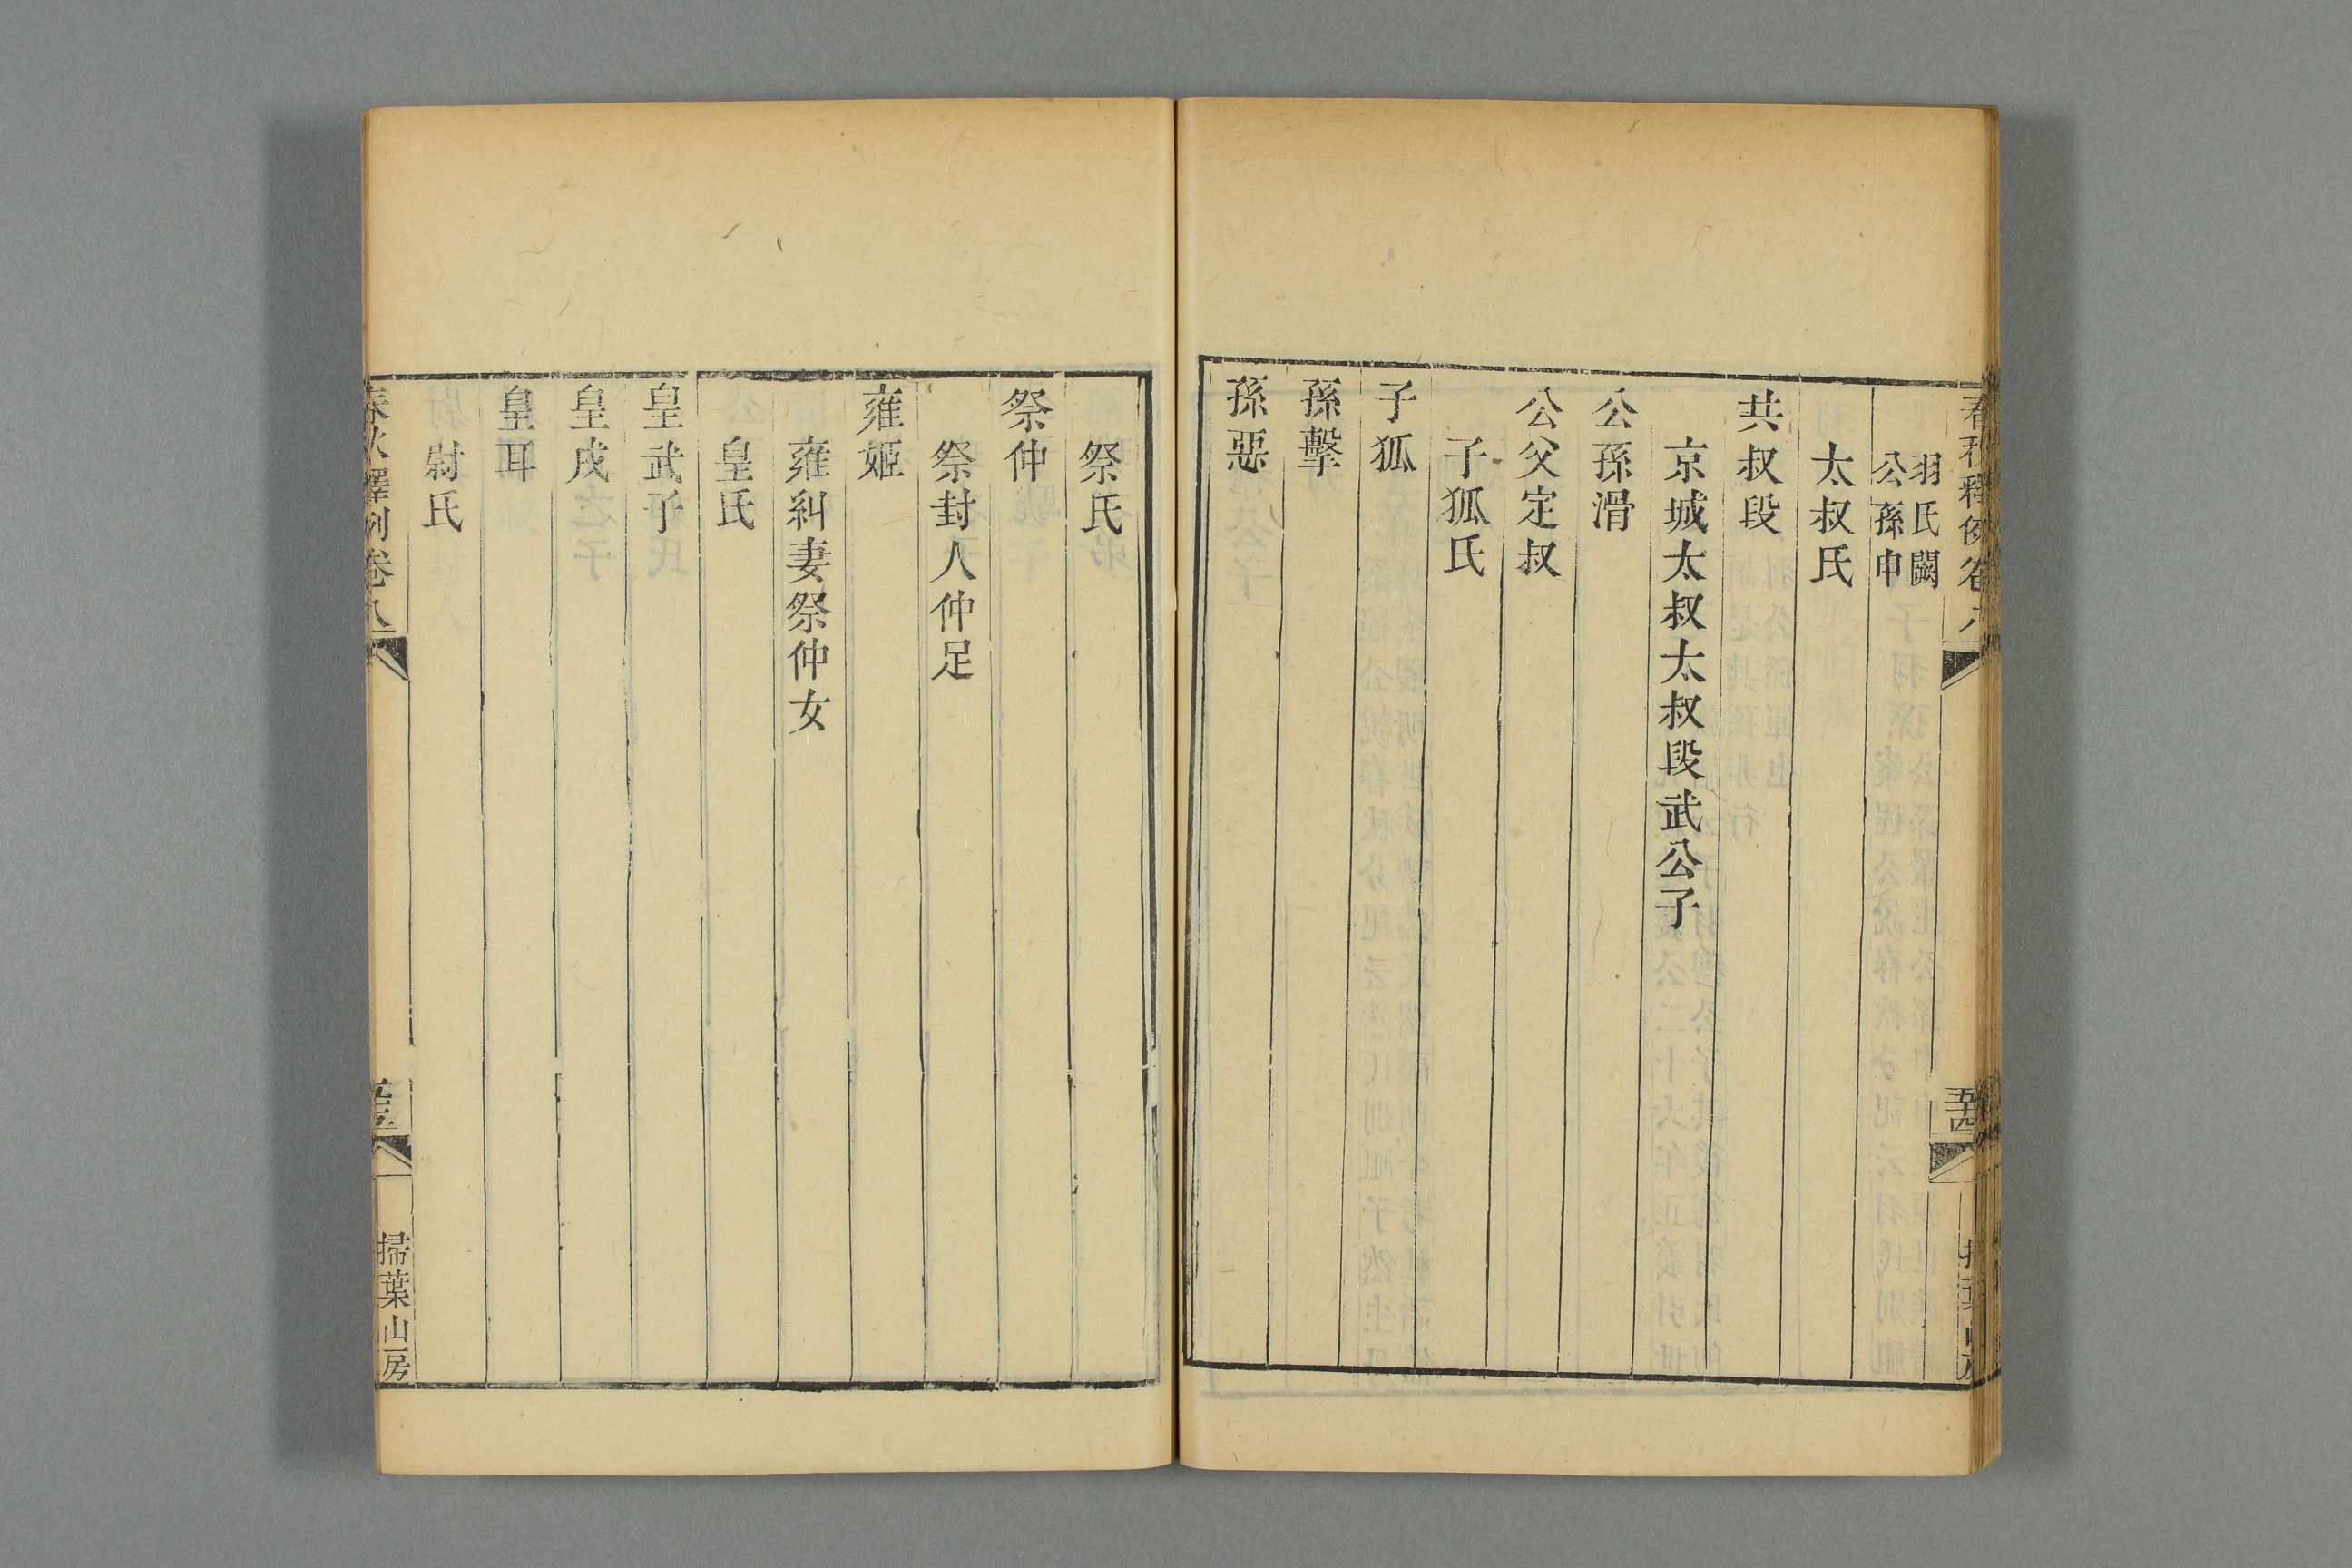 春秋釋例卷八
五十四
羽氏闕
公孫申
太叔氏
共叔段
京城太叔太叔段武公子
公孫滑
公父定叔
子狐氏
子狐
孫擊
孫惡
祭氏
祭仲
祭封人仲足
雍姬
雍糾妻祭仲女
皇氏
皇武子
皇戌
皇耳
尉氏
春秋釋例卷八
五十五
掃葉山房